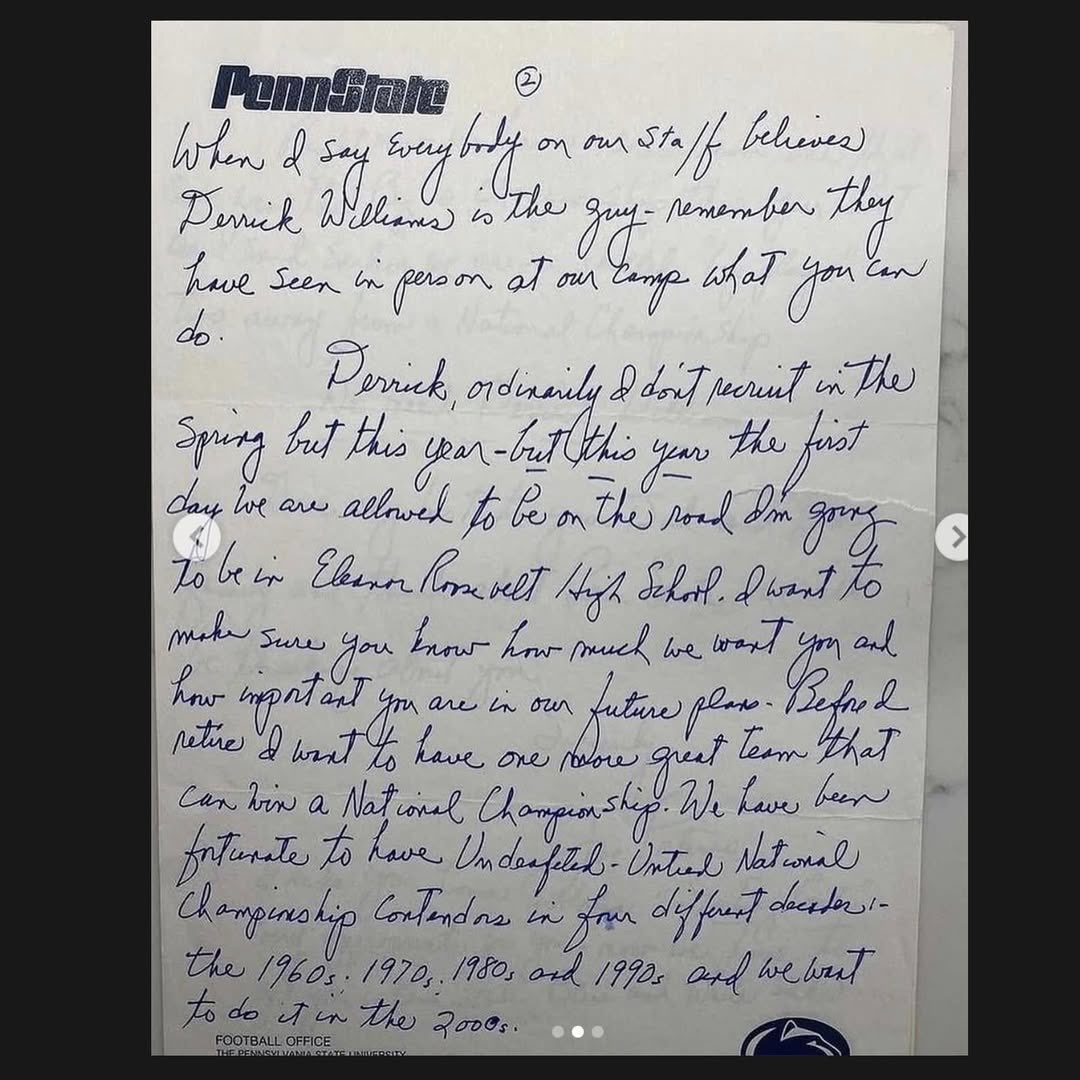 PennState
②
When I say Everybody on our Staff believes
Derrick Williams is the guy - remember they
have seen in person at our camp what you can
do.
Derrick, ordinarily I don't recruit in the
Spring but this year - but this year the first
day we are allowed to be on the road I'm going
to be in Eleanor Roosevelt High School. I want to
make sure you know how much we want you and
how important you are in our future plans - Before I
retire I want to have one more great team that
can win a National Championship. We have been
fortunate to have Undeafeted - Untied National
Championship Contendors in four different decades :-
the 1960s, 1970s, 1980s and 1990s and we want
to do it in the 2000s.
FOOTBALL OFFICE
THE PENNSYLVANIA STATE UNIVERSITY